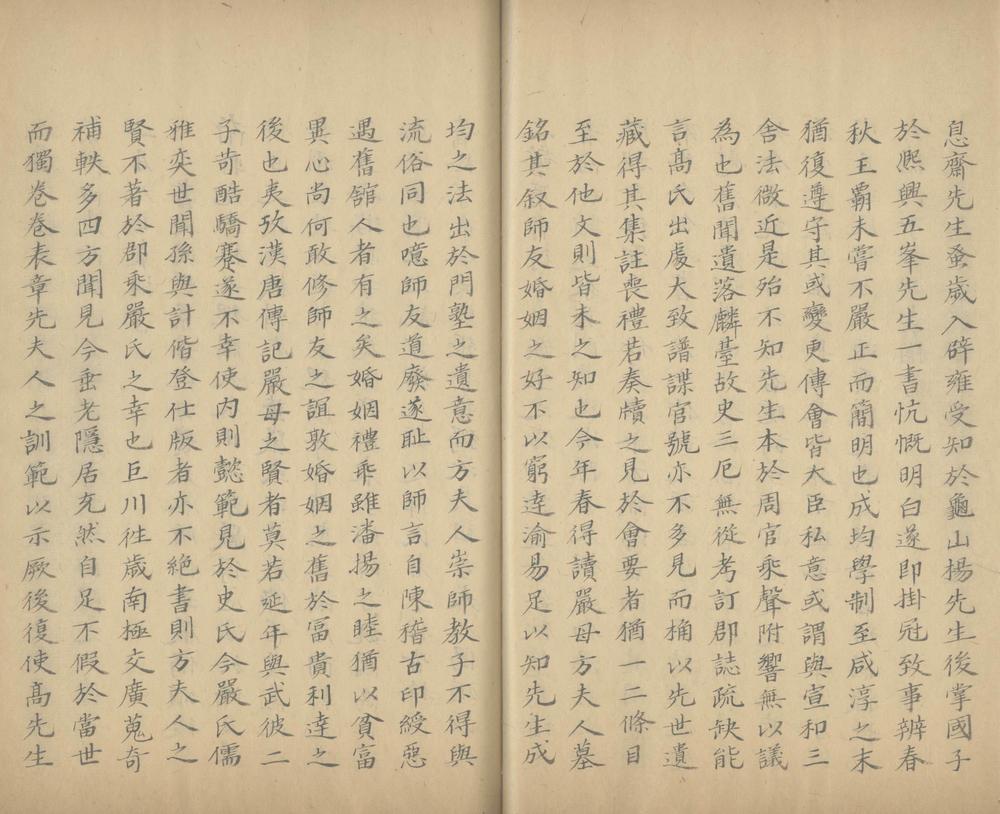 息齋先生蚤歲入辟雍受知於龜山楊先生後掌國子
於熈興五峯先生一書忼慨明白遂即掛冠致事辨春
秋王覇未嘗不嚴正而簡明也成均學制至咸淳之末
猶復遵守其或變更傳會皆大臣私意或謂與宣和三
舍法微近是殆不知先生本於周官乘聲附響無以議
為也舊聞遺落麟臺故史三厄無從考訂郡誌疏缺能
言髙氏出處大致譜諜官號亦不多見而桷以先世遺
藏得其集註喪禮若奏牘之見於會要者猶一二條目
至於他文則皆未之知也今年春得讀嚴母方夫人墓
銘其叙師友婚姻之好不以窮達渝易足以知先生成
均之法出於門塾之遺意而方夫人崇師教子不得與
流俗同也噫師友道廢遂耻以師言自陳稽古印綬惡
遇舊舘人者有之矣婚姻禮乖雖潘揚之睦猶以貧富
異心尚何敢修師友之誼敦婚姻之舊於富貴利達之
後也夷攷漢唐傳記嚴母之賢者莫若延年與武彼二
子苛酷驕蹇遂不幸使内則懿範見於史氏今嚴氏儒
雅奕世聞孫與計偕登仕版者亦不絶書則方夫人之
賢不著於郡乘嚴氏之幸也巨川徃歲南極交廣蒐奇
補軼多四方聞見今垂老隱居充然自足不假於當世
而獨卷卷表章先夫人之訓範以示厥後復使髙先生